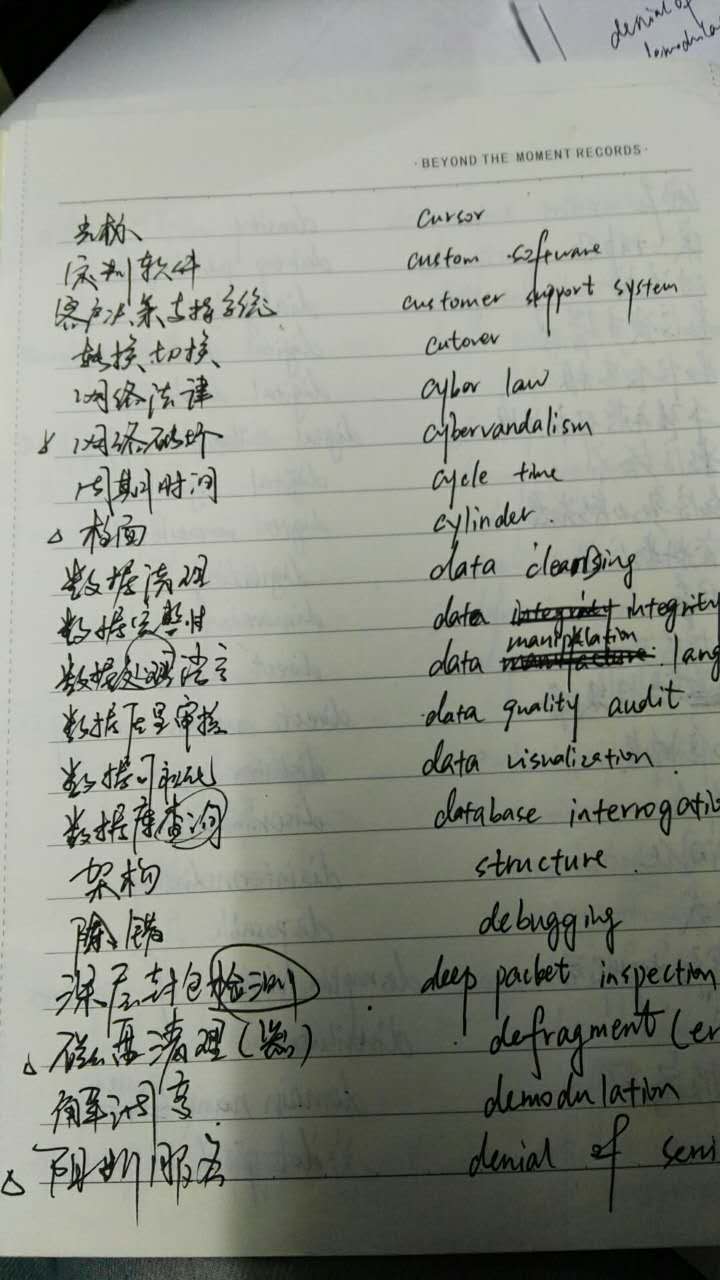 denial of
·BEYOND THE MOMENT RECORDS·
光标 cursor
定制软件 custom software
客户决策支持系统 customer support system
转换、切换 cutover
网络法律 cyber law
网络破坏 cybervandalism
周期时间 cycle time
△ 柱面 cylinder.
数据清理 data cleansing
数据完整性 data integrity integrity
数据处理语言 data manipulation lang
数据质量审核 data quality audit
数据可视化 data visualization
数据库查询 database interrogatio
架构 structure
除错 debugging
深层封包检测 deep packet inspection
△ 磁盘清理(器) defragment (er
解调 demodulation
△ 阻断服务 denial of servi